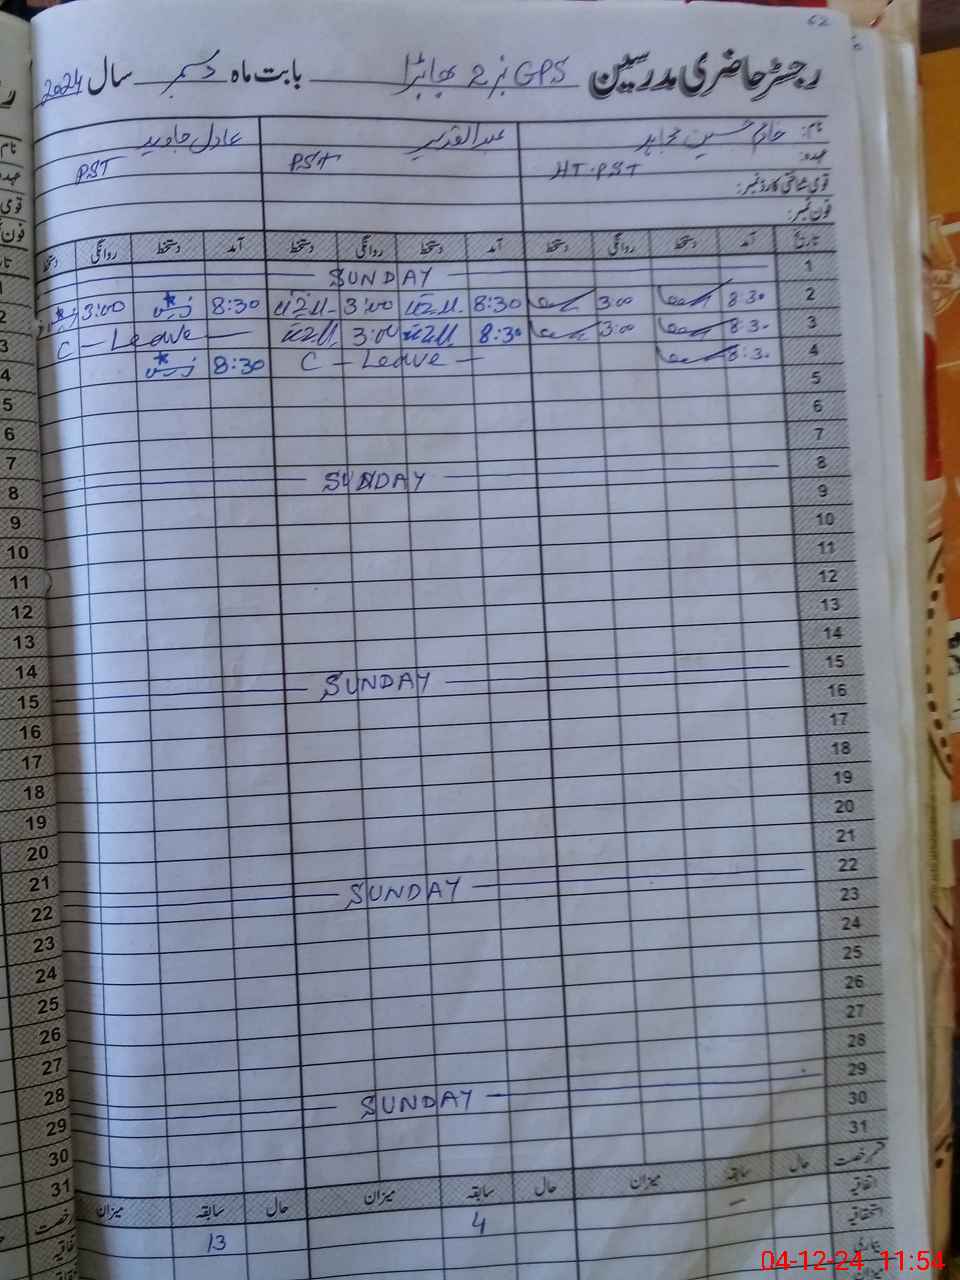 62
رجسٹر حاضری مدرسین GPS نمبر 2 بھابڑا بابت ماہ دسمبر سال 2024
نام: خادم حسین مجاہد عبدالقدیر عادل جاوید
عہدہ: HT.PST PST PST
قومی شناختی کارڈ نمبر:
فون نمبر:
تاریخ آمد دستخط روانگی دستخط آمد دستخط روانگی دستخط آمد دستخط روانگی دستخط
1 SUNDAY
2 8:30 3:00 8:30 3:00 8:30 3:00
3 8:30 3:00 8:30 3:00 C - Leave
4 8:30 C - Leave 8:30
5
6
7
8 SUNDAY
9
10
11
12
13
14
15 SUNDAY
16
17
18
19
20
21
22 SUNDAY
23
24
25
26
27
28
29 SUNDAY
30
31
قسم رخصت حال سابقہ میزان حال سابقہ میزان حال سابقہ میزان
اتفاقیہ 4 13
استحقاقیہ
بیماری
میزان
04-12-24 11:54